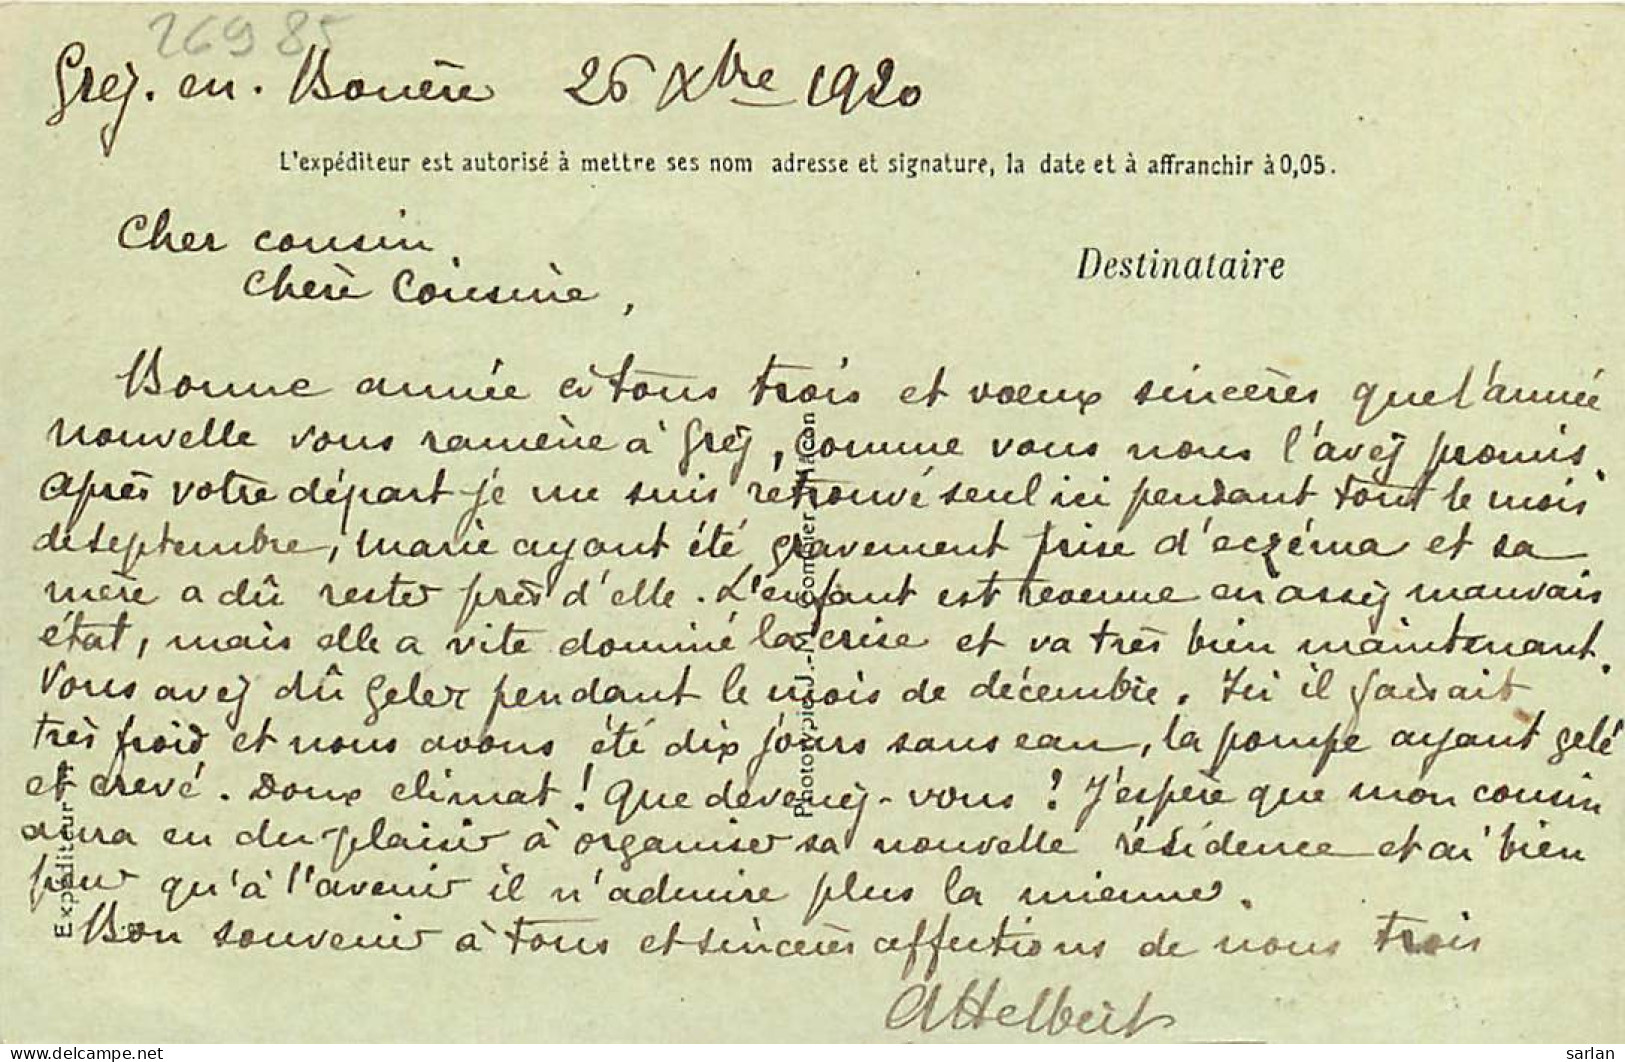 26985
Grez. en. Bouère 26 Xbre 1920
L'expéditeur est autorisé à mettre ses nom adresse et signature, la date et à affranchir à 0,05.
Cher cousin,
Destinataire
Chère Cousine,
Bonne année à tous trois et voeux sincères que l'année
nouvelle vous ramène à Grez, comme vous nous l'avez promis.
Après votre départ je me suis retrouvé seul ici pendant tout le mois
de septembre, Marie ayant été gravement prise d'eczéma et sa
mère a dû rester près d'elle. L'enfant est revenue en assez mauvais
état, mais elle a vite dominé la crise et va très bien maintenant.
Vous avez dû geler pendant le mois de décembre. Ici il faisait
très froid et nous avons été dix jours sans eau, la pompe ayant gelé
et crevé. Doux climat ! Que devenez-vous ? J'espère que mon cousin
aura eu du plaisir à organiser sa nouvelle résidence et si bien
pour qu'à l'avenir il n'admire plus la mienne.
Bon souvenir à tous et sincères affections de nous trois
Expéditeur
Phototypie J. Combier Macon
delcampe.net
sarlan